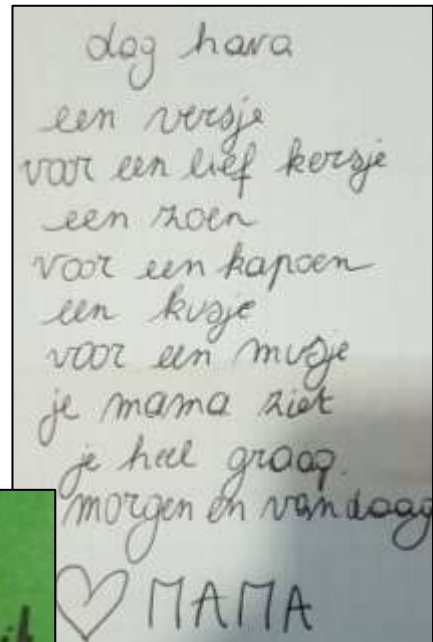 dag hava
een versje
voor een lief kersje
een zoen
voor een kapoen
een kusje
voor een musje
je mama ziet
je heel graag.
morgen en vandaag
MAMA